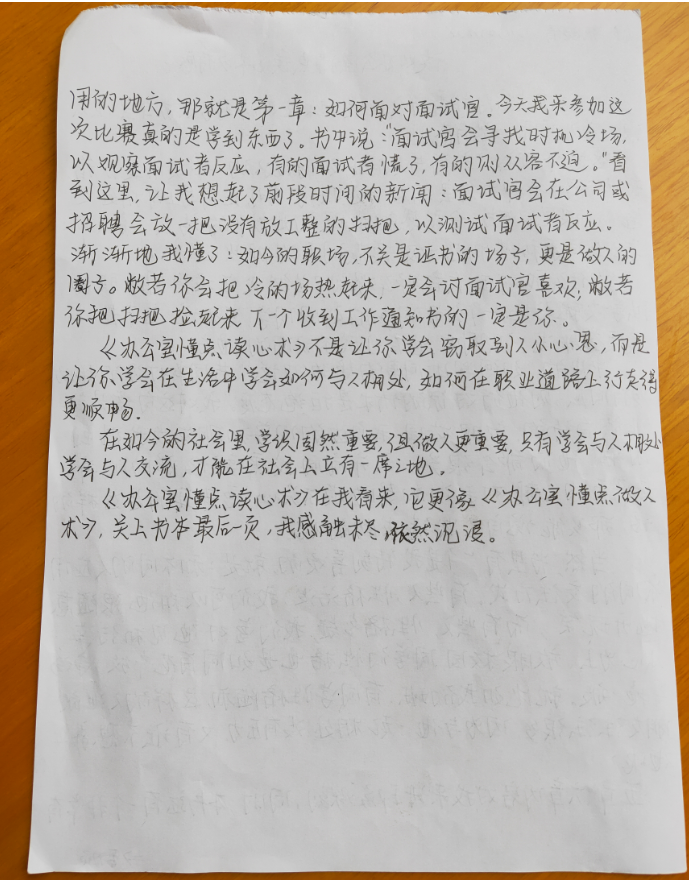 用的地方，那就是第一章：如何面对面试官。今天我来参加这
次比赛真的是学到东西了。书中说："面试官会寻找时机冷场，
以观察面试者反应，有的面试者慌了，有的则从容不迫。"看
到这里，让我想起了前段时间的新闻：面试官会在公司或
招聘会放一把没有放工整的扫把，以测试面试者反应。
渐渐地我懂了：如今的职场，不关是证书的场所，更是做人的
圈子。敝若你会把冷的场热起来，一定会讨面试官喜欢；敝若
你把扫把捡起来 下一个收到工作通知书的一定是你。
《办公室懂点读心术》不是让你学会窃取别人小心思，而是
让你学会在生活中学会如何与人相处，如何在职业道路上行走得
更顺畅.
在如今的社会里，学识固然重要，但做人更重要，只有学会与人相处
学会与人交流，才能在社会上立有一席之地。
《办公室懂点读心术》在我看来，它更像《办公室懂点做人
术》，关上书本最后一页，我感触未尽，依然沉浸。